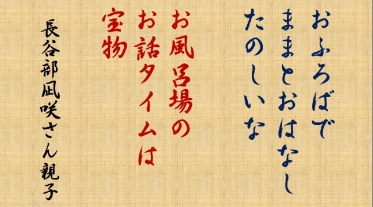 おふろばで
ままとおはなし
たのしいな
お風呂場の
お話タイムは
宝物
長谷部凪咲さん親子